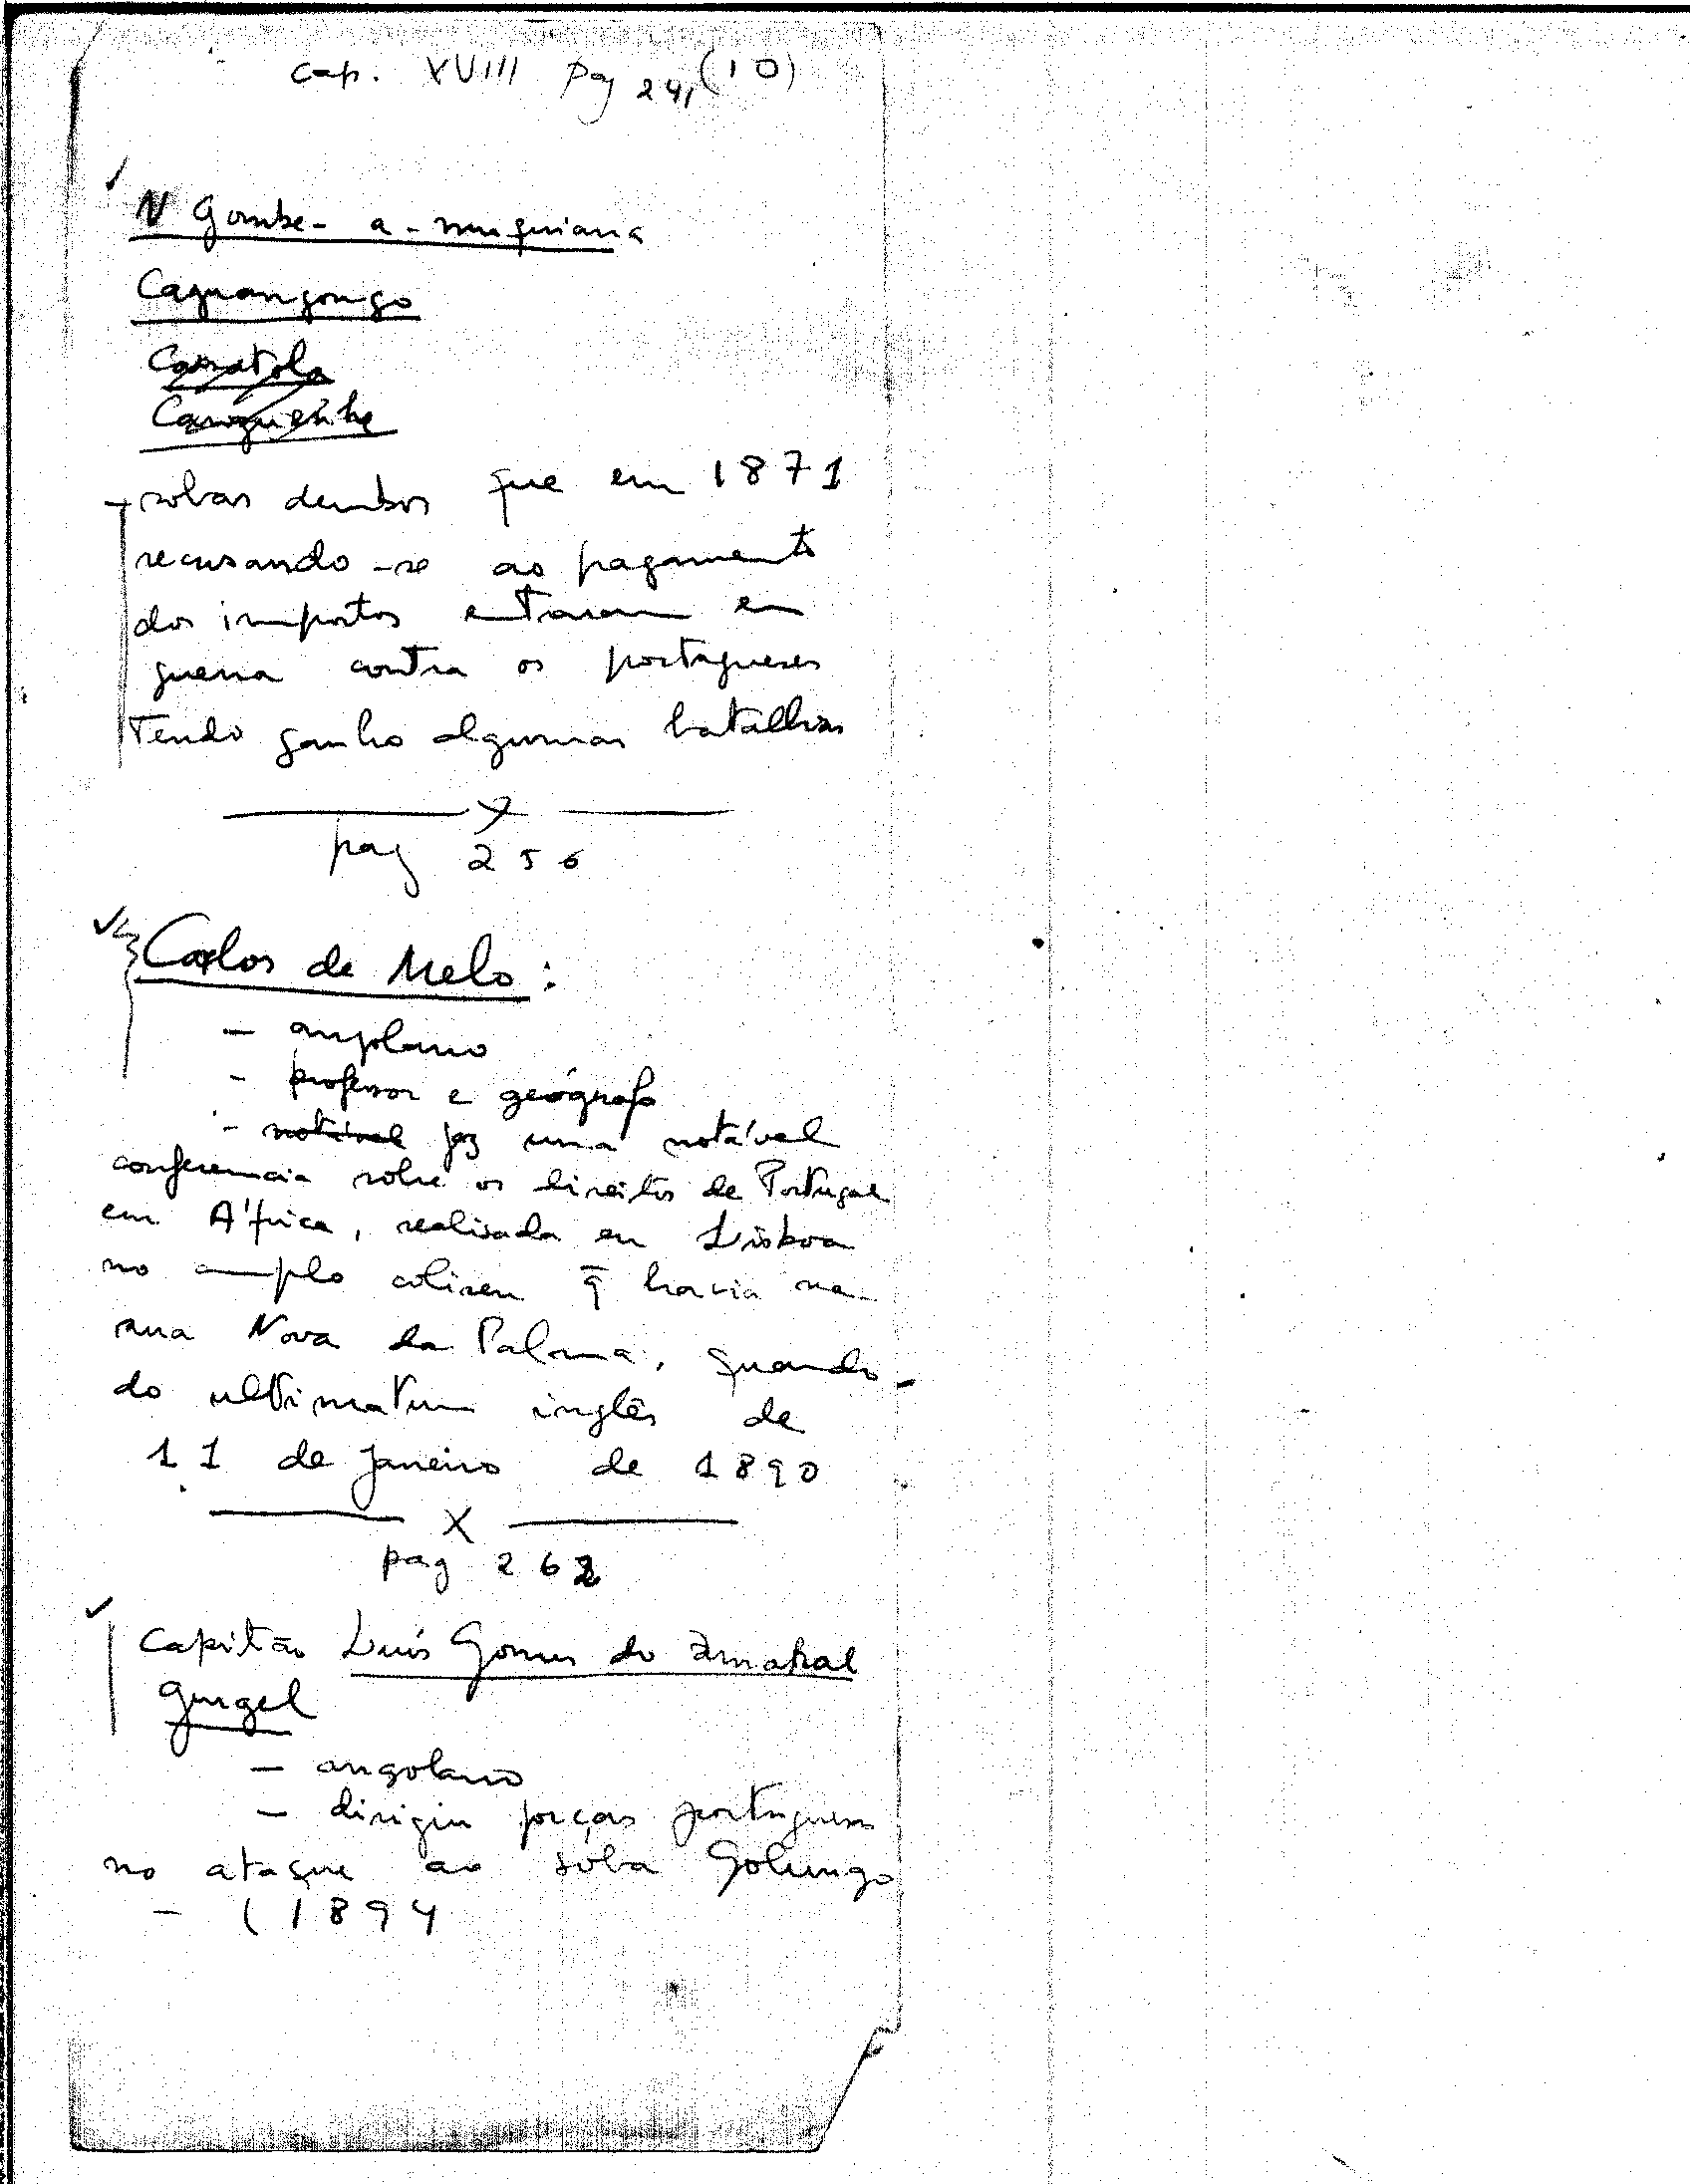 cap. XVIII pag 241 (10)
N Gombe - a - muquiama
Caquangongo
Cazuangongo
sobas dembos que em 1871
recusando-se ao pagamento
dos impostos entraram em
guerra contra os portugueses
Tendo ganho algumas batalhas
x
pag 256
Carlos de Melo:
- angolano
- professor e geógrafo
- notável fez uma notável
conferencia sobre os direitos de Portugal
em África, realisada em Lisboa
no amplo coliseu q̄ havia na
rua Nova da Palma, quando
do ultimatum inglês de
11 de Janeiro de 1890
X
pag 262
Capitão Luís Gomes do Amaral
Gurgel
- angolano
- dirigiu forças portuguesas
no ataque ao soba Golungo
- (1894